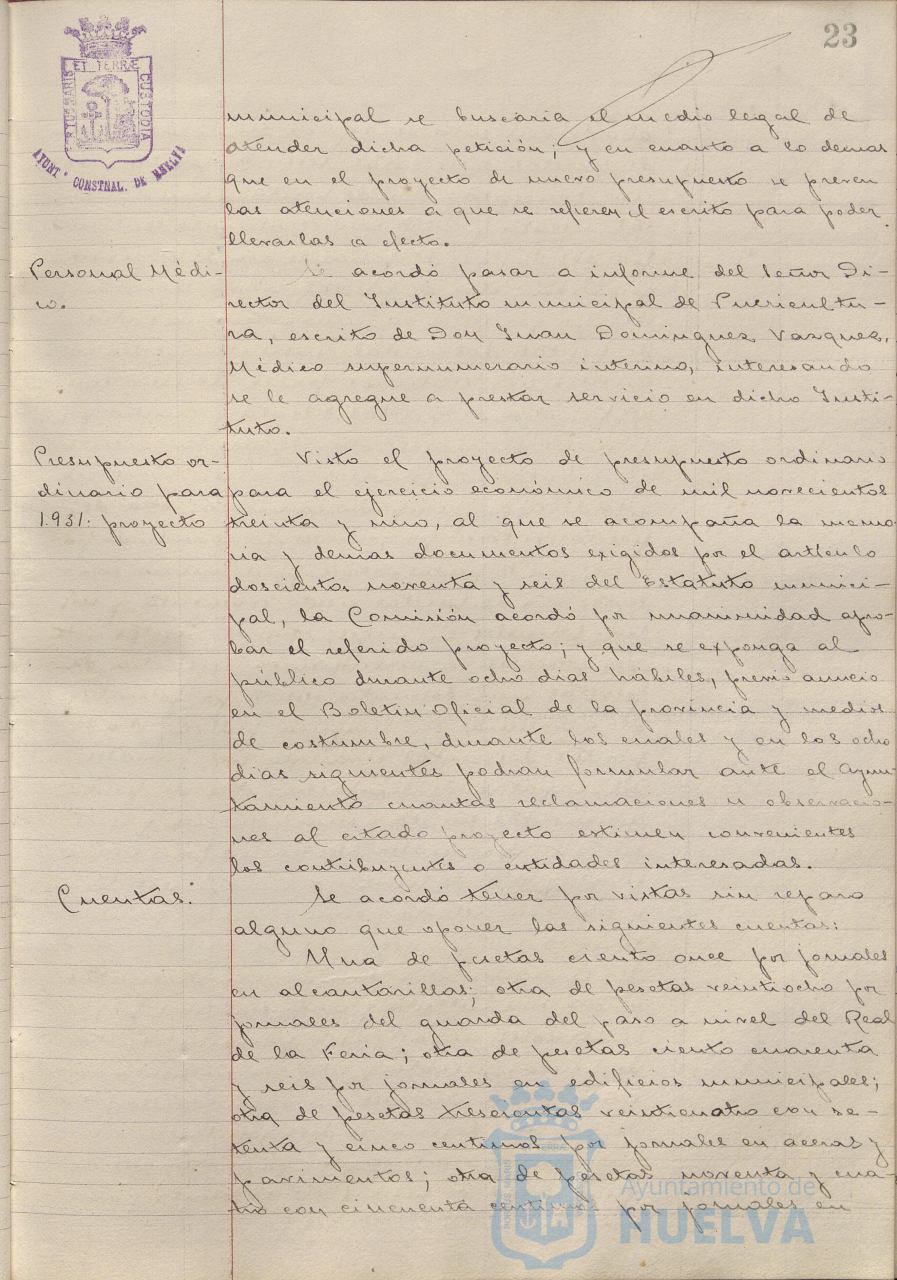 23
PORTUS MARIS ET TERRÆ CUSTODIA
AYUNTº CONSTNAL. DE HUELVA
municipal se buscaria el medio legal de
atender dicha petición; y en cuanto a lo demas
que en el proyecto de nuevo presupuesto se preven
las atenciones a que se refiere el escrito para poder
llevarlas a efecto.
Personal Médi-
co.
Se acordó pasar a informe del Señor Di-
rector del Instituto municipal de Puericultu-
ra, escrito de Don Juan Dominguez Vazquez,
Médico supernumerario interino, interesando
se le agregue a prestar servicio en dicho Insti-
tuto.
Presupuesto or-
dinario para
1.931. proyecto
Visto el proyecto de presupuesto ordinario
para el ejercicio económico de mil novecientos
treinta y uno, al que se acompaña la memo-
ria y demas documentos exigidos por el artículo
doscientos noventa y seis del Estatuto munici-
pal, la Comisión acordó por unanimidad apro-
bar el referido proyecto; y que se exponga al
público durante ocho dias hábiles, previo anuncio
en el Boletin Oficial de la provincia y medios
de costumbre, durante los cuales y en los ocho
dias siguientes podran formular ante el Ayun-
tamiento cuantas reclamaciones u observacio-
nes al citado proyecto estimen convenientes
los contribuyentes o entidades interesadas.
Cuentas.
Se acordó tener por vistas sin reparo
alguno que oponer las siguientes cuentas:
Una de pesetas ciento once por jornales
en alcantarillas; otra de pesetas veintiocho por
jornales del guarda del paso a nivel del Real
de la Feria; otra de pesetas ciento cuarenta
y seis por jornales en edificios municipales;
otra de pesetas trescientas veinticuatro con se-
tenta y cinco centimos por jornales en aceras y
pavimentos; otra de pesetas noventa y cua-
tro con cincuenta centimos por jornales en
Ayuntamiento de
HUELVA